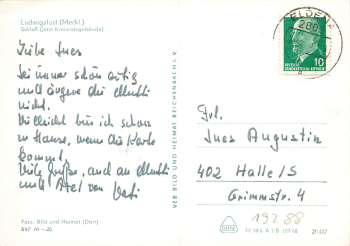 Ludwigslust (Meckl.)
Schloß (jetzt Kreisratsgebäude)
Liebe Ines
Sei immer schön artig
und ärgere die Mutti
nicht.
Vielleicht bin ich schon
zu Hause, wenn die Karte
kommt.
Viele Grüße, auch an Mutti
und Axel von Vati
Foto: Bild und Heimat (Darr)
EVP M -.20
VEB BILD UND HEIMAT REICHENBACH I. V.
10
DEUTSCHE DEMOKRATISCHE REPUBLIK
Frl.
Ines Augustin
402 Halle/S
Grimmstr. 4
19288